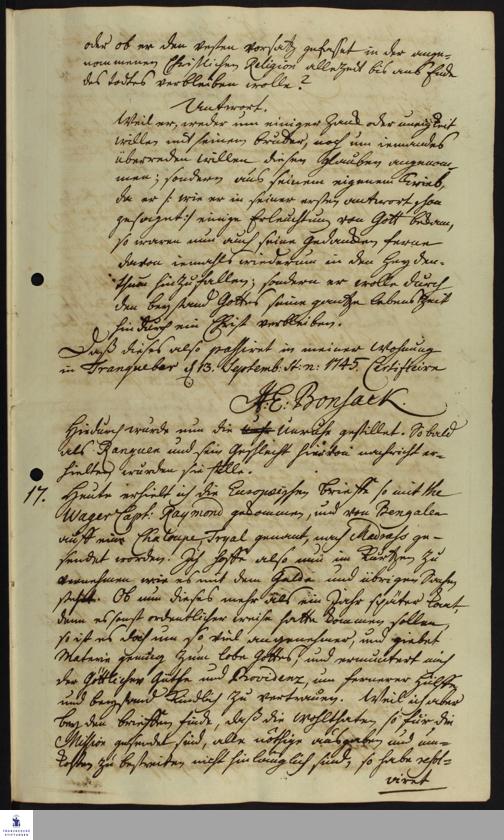 oder ob er den vesten vorsatz gefasset in der ange-
nommenen Christlichen Religion allezeit bis ans Ende
des todtes verbleiben wolle?
Antwort.
Weil er, weder um einiger Zanck oder uneinigkeit
willen mit seinem bruder, noch um iemandes
überreden willen diesen Glauben angenom-
men; sondern aus seinem eigenem trieb,
da er /: wie er in seiner ersten antwort schon
gesaget :/ einige Erleuchtung von Gott bekam,
so waren nun auch seine Gedancken ferne
davon iemahls wiederum in den Heyden-
thum hin zu fallen; sondern er wolle durch
den beystand Gottes seine gantze lebens Zeit
hindurch ein Christ verbleiben.
Daß dieses also passiret in meiner Wohnung
in Tranquebar d 13. Septemb: st: n: 1745. Certificire
A: E: Bonsack
Hierdurch wurde nun die Unruhe gestillet. So bald
als und sein Geschlecht hievon nachricht er-
hielten wurden sie stille.
17. Heute erhielt ich die Europæischen brieffe so mit the
Wager Capt: Raymond gekommen, und von Bengalen
auff eine Chaloupe, Tryal genant, nach Madrass ge-
sendet worden. Ich hoffe also nun in Kurtzen zu
vernehmen wie es mit dem Gelde und übrigen Sachen
steht. Ob nun dieses mehr als ein Jahr später kömt,
denn es sonst ordentlicher weise hätte kommen sollen,
so ist es doch um so viel angenehmer, und giebet
Materie genug zum lobe Gottes, und ermuntert mich
der Göttlichen Güthe und Providenz, um fernerer Hülffe
und beystand kindlich zu vertrauen. Weil ich aber
bey den brieffen finde, daß die wohlthaten so für die
Mission gesendet sind, alle nöthige ausgaben und un-
kosten zu bestreiten nicht hinlänglich sind, so habe resol-
viret
FRANCKESCHE
STIFTUNGEN